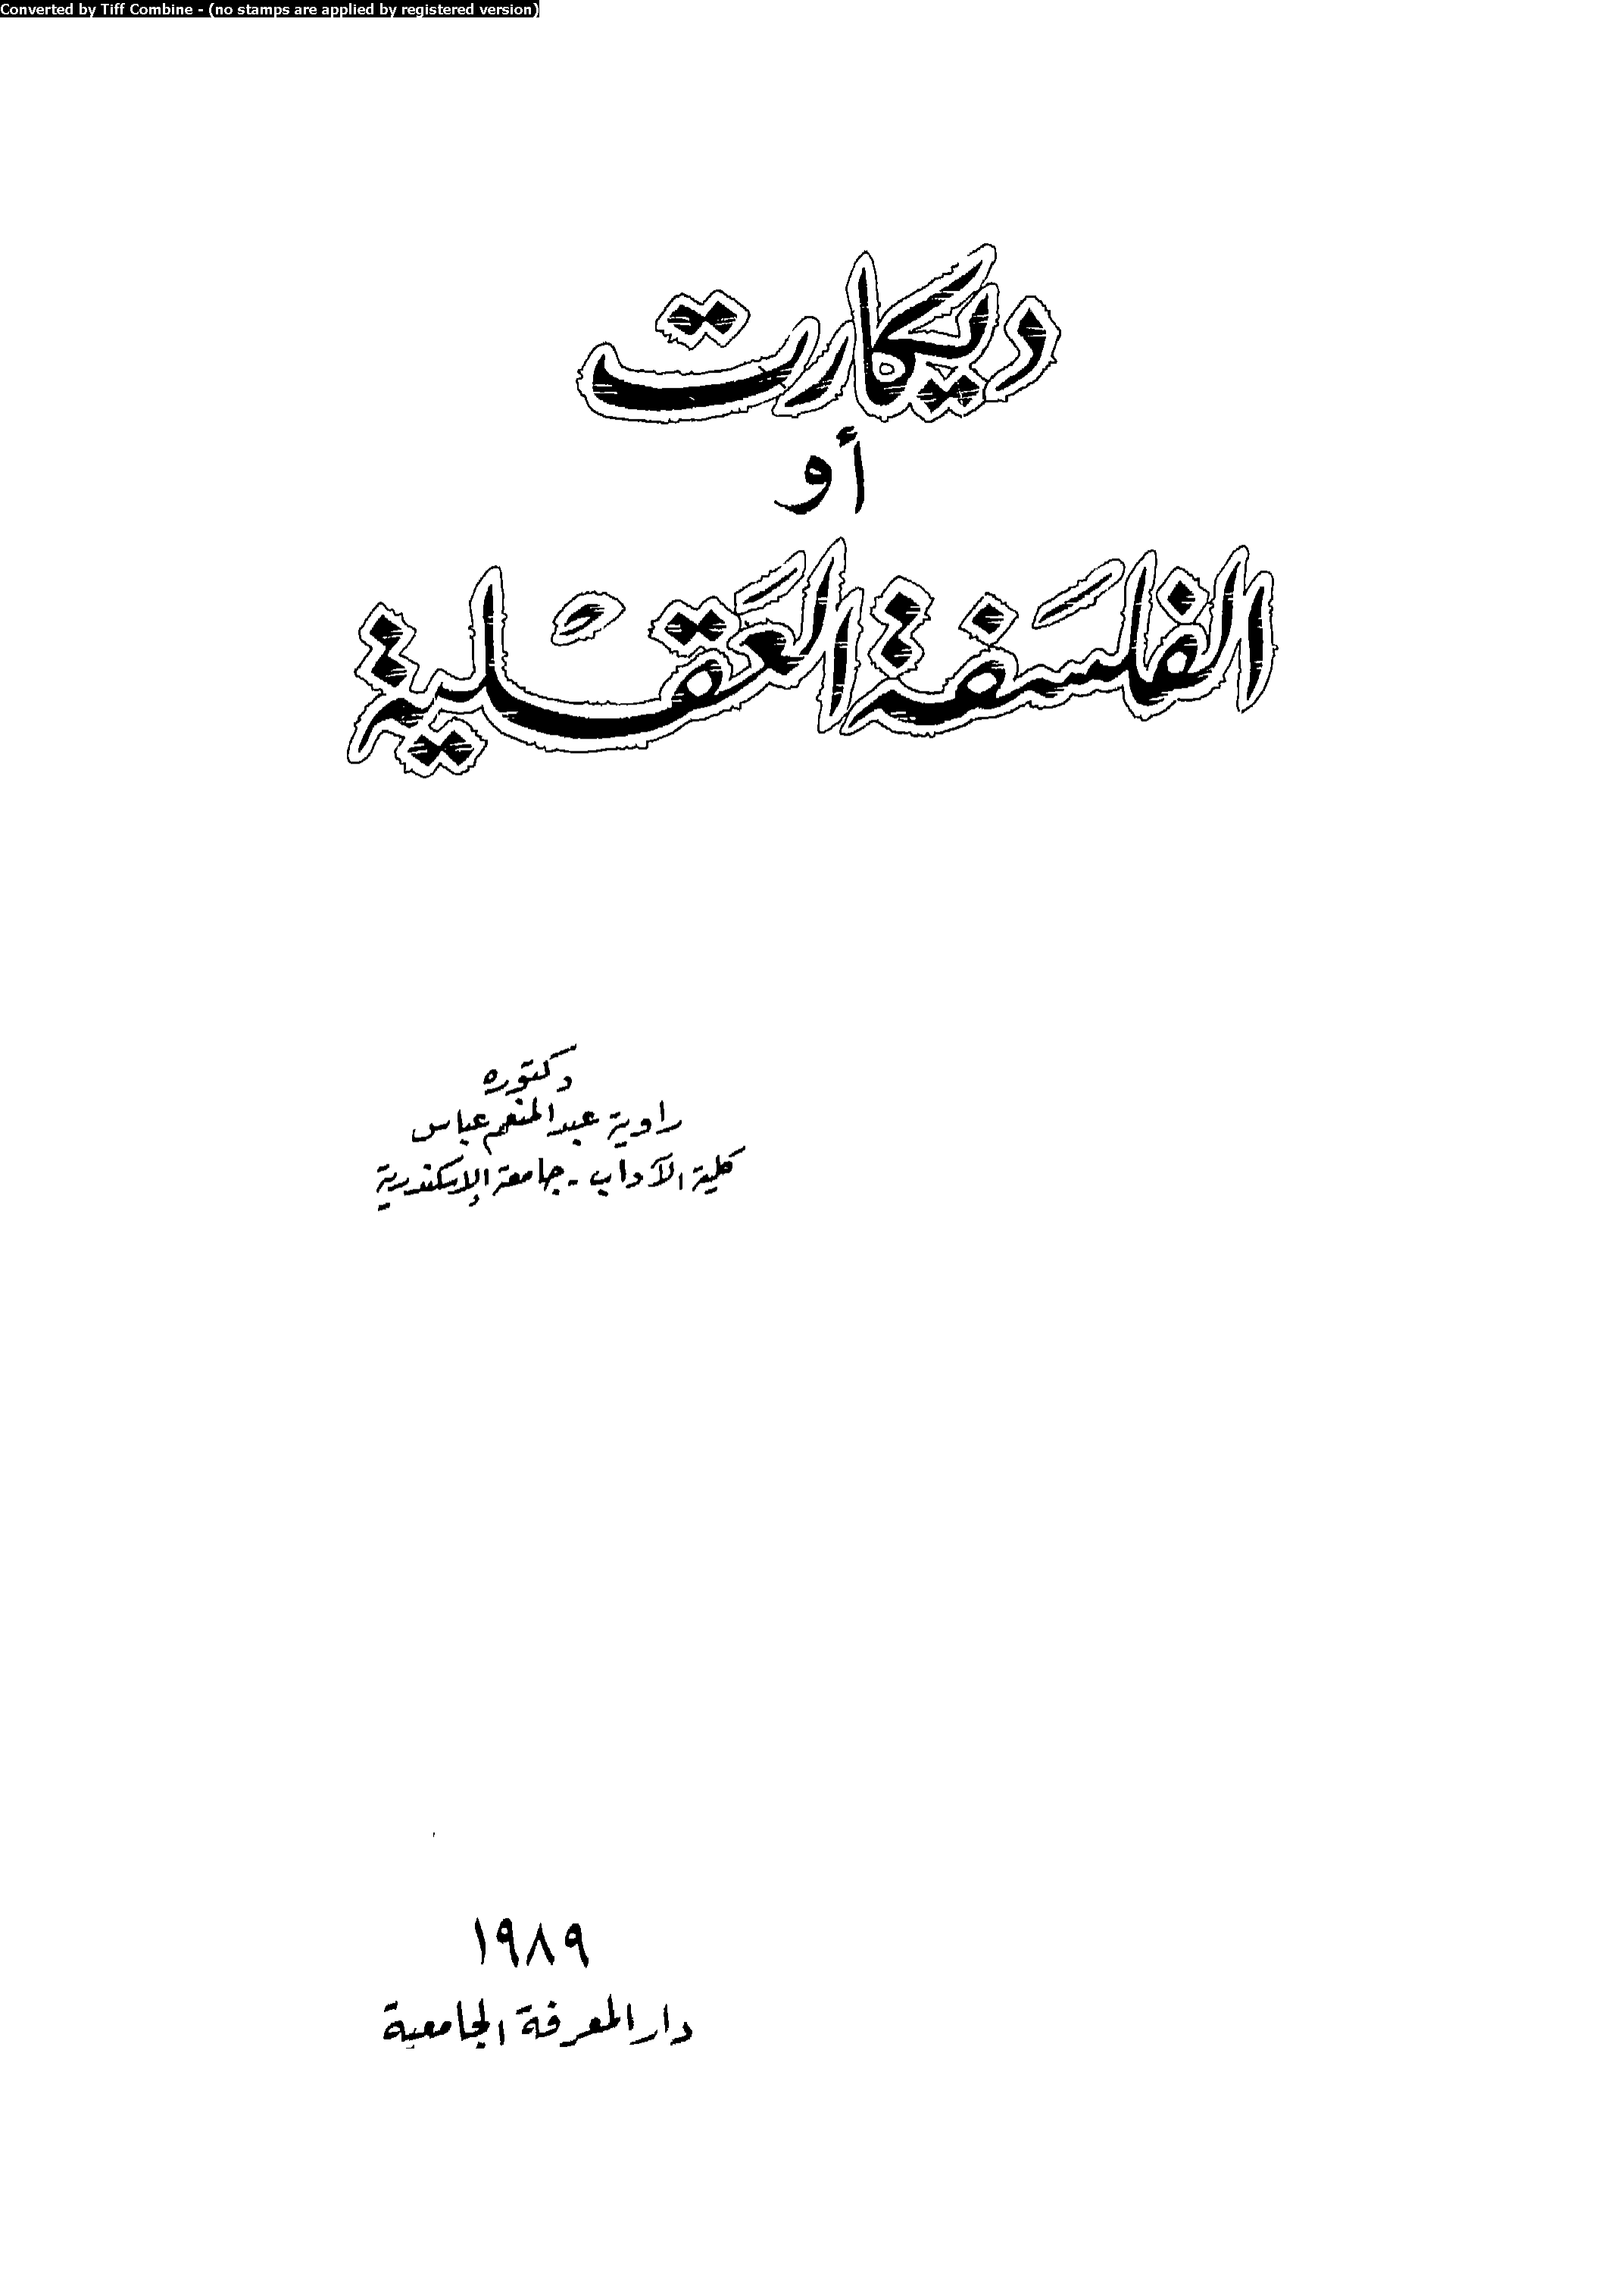 Converted by Tiff Combine - (no stamps are applied by registered version)
ديكارت
أو
الفلسَفة العَقلية
دكتوره
راوية عبد المنعم عباس
كلية الآداب - جامعة الإسكندرية
١٩٨٩
دار المعرفة الجامعية